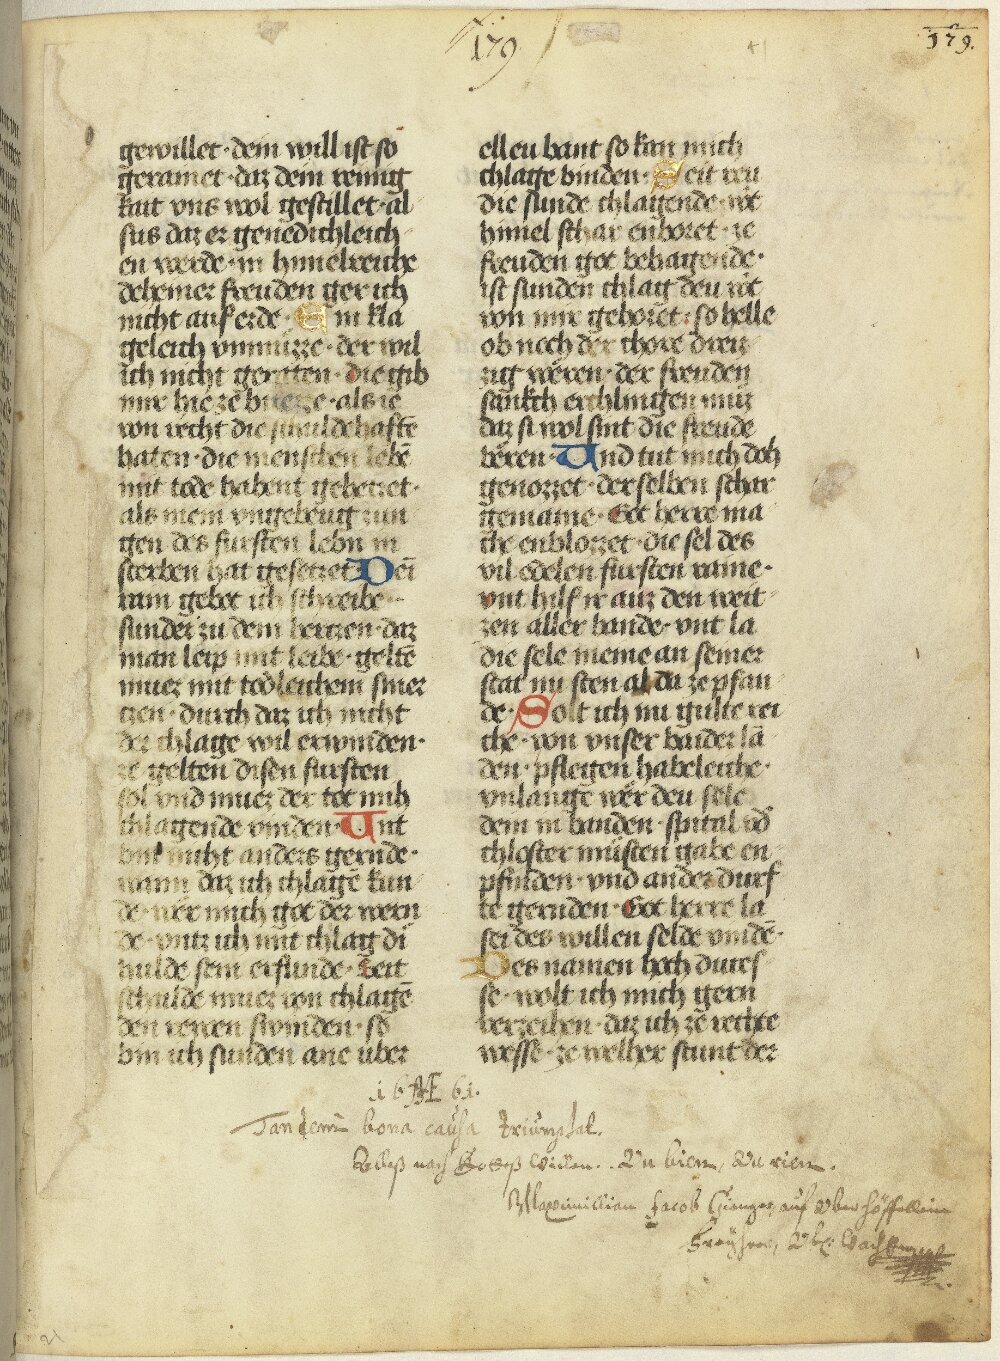 179
179.
gewillet · dein will ist so
geramet · daz dem reinig
kait vns wol gestillet · al
sus daz er genedichleich
en werde · in himelreiche
deheiner freuden ger ich
nicht auf erde · Ein kla
geleich vnmuzze · der wil
ich nicht geraten · die gib
mir hie ze buezze · als ie
von recht die schuldehafte
haten · die menschen lebē
mit tode habent geletzet ·
als mein vngebeug zun
gen des fursten lebn in
sterben hat gesetzet Dem
ram gebot ich schreibe ·
sunder zu dem hertzen · daz
man leip mit leibe · geltē
muez mit todleichem smer
tzen · durch daz ich nicht
der chlage wil erwinden ·
ze gelten disen fursten
sol vnd muez der tot mih
chlagende vinden · Vnt
bin nicht anders gernde ·
wann daz ich chlagē kun
de · wer mich got der wern
de · vntz ich mit chlag di
hulde sein erfunde · Seit
schulde muez von chlagē
den rewen swinden · so
bin ich sunden ane vber
elleu bant so kan mich
chlage binden · Seit reu
die sunde chlagende · rot
himel schar enboret · ze
freuden got behagende ·
ist sunden chlag deu rot
von mir gehoret · so helle
ob noch der chore dreiz
zig weren · der freuden
sankch erchlingen muz
daz si wol sint die freude
beren · Und tut mich doh
genozzet · der selben schar
gemaine · Got herre ma
che enblozzet · die sel des
vil edelen fursten raine ·
vnt hilf ir auz den weit
zen aller bande · vnt la
die sele meine an seiner
stat nu sten al da ze pfan
de · Solt ich nu gulte rei
che · von vnser baider lā
den · pflegen habeleiche ·
vnlange wer deu sele
dein in banden · spital vd
chloster musten gabe en
pfinden · vnd ander durf
te gernden · Got herre la
sei des willen selde vindē ·
Des namen hoch dures
se · wolt ich mich gern
verzeihen · daz ich ze rechte
wesse · ze welher stunt der
16 AE 61.
Tandem bona causa triumphat.
Alleß nach Gotteß Willen.
Maximillian Jacob
Freyherr,